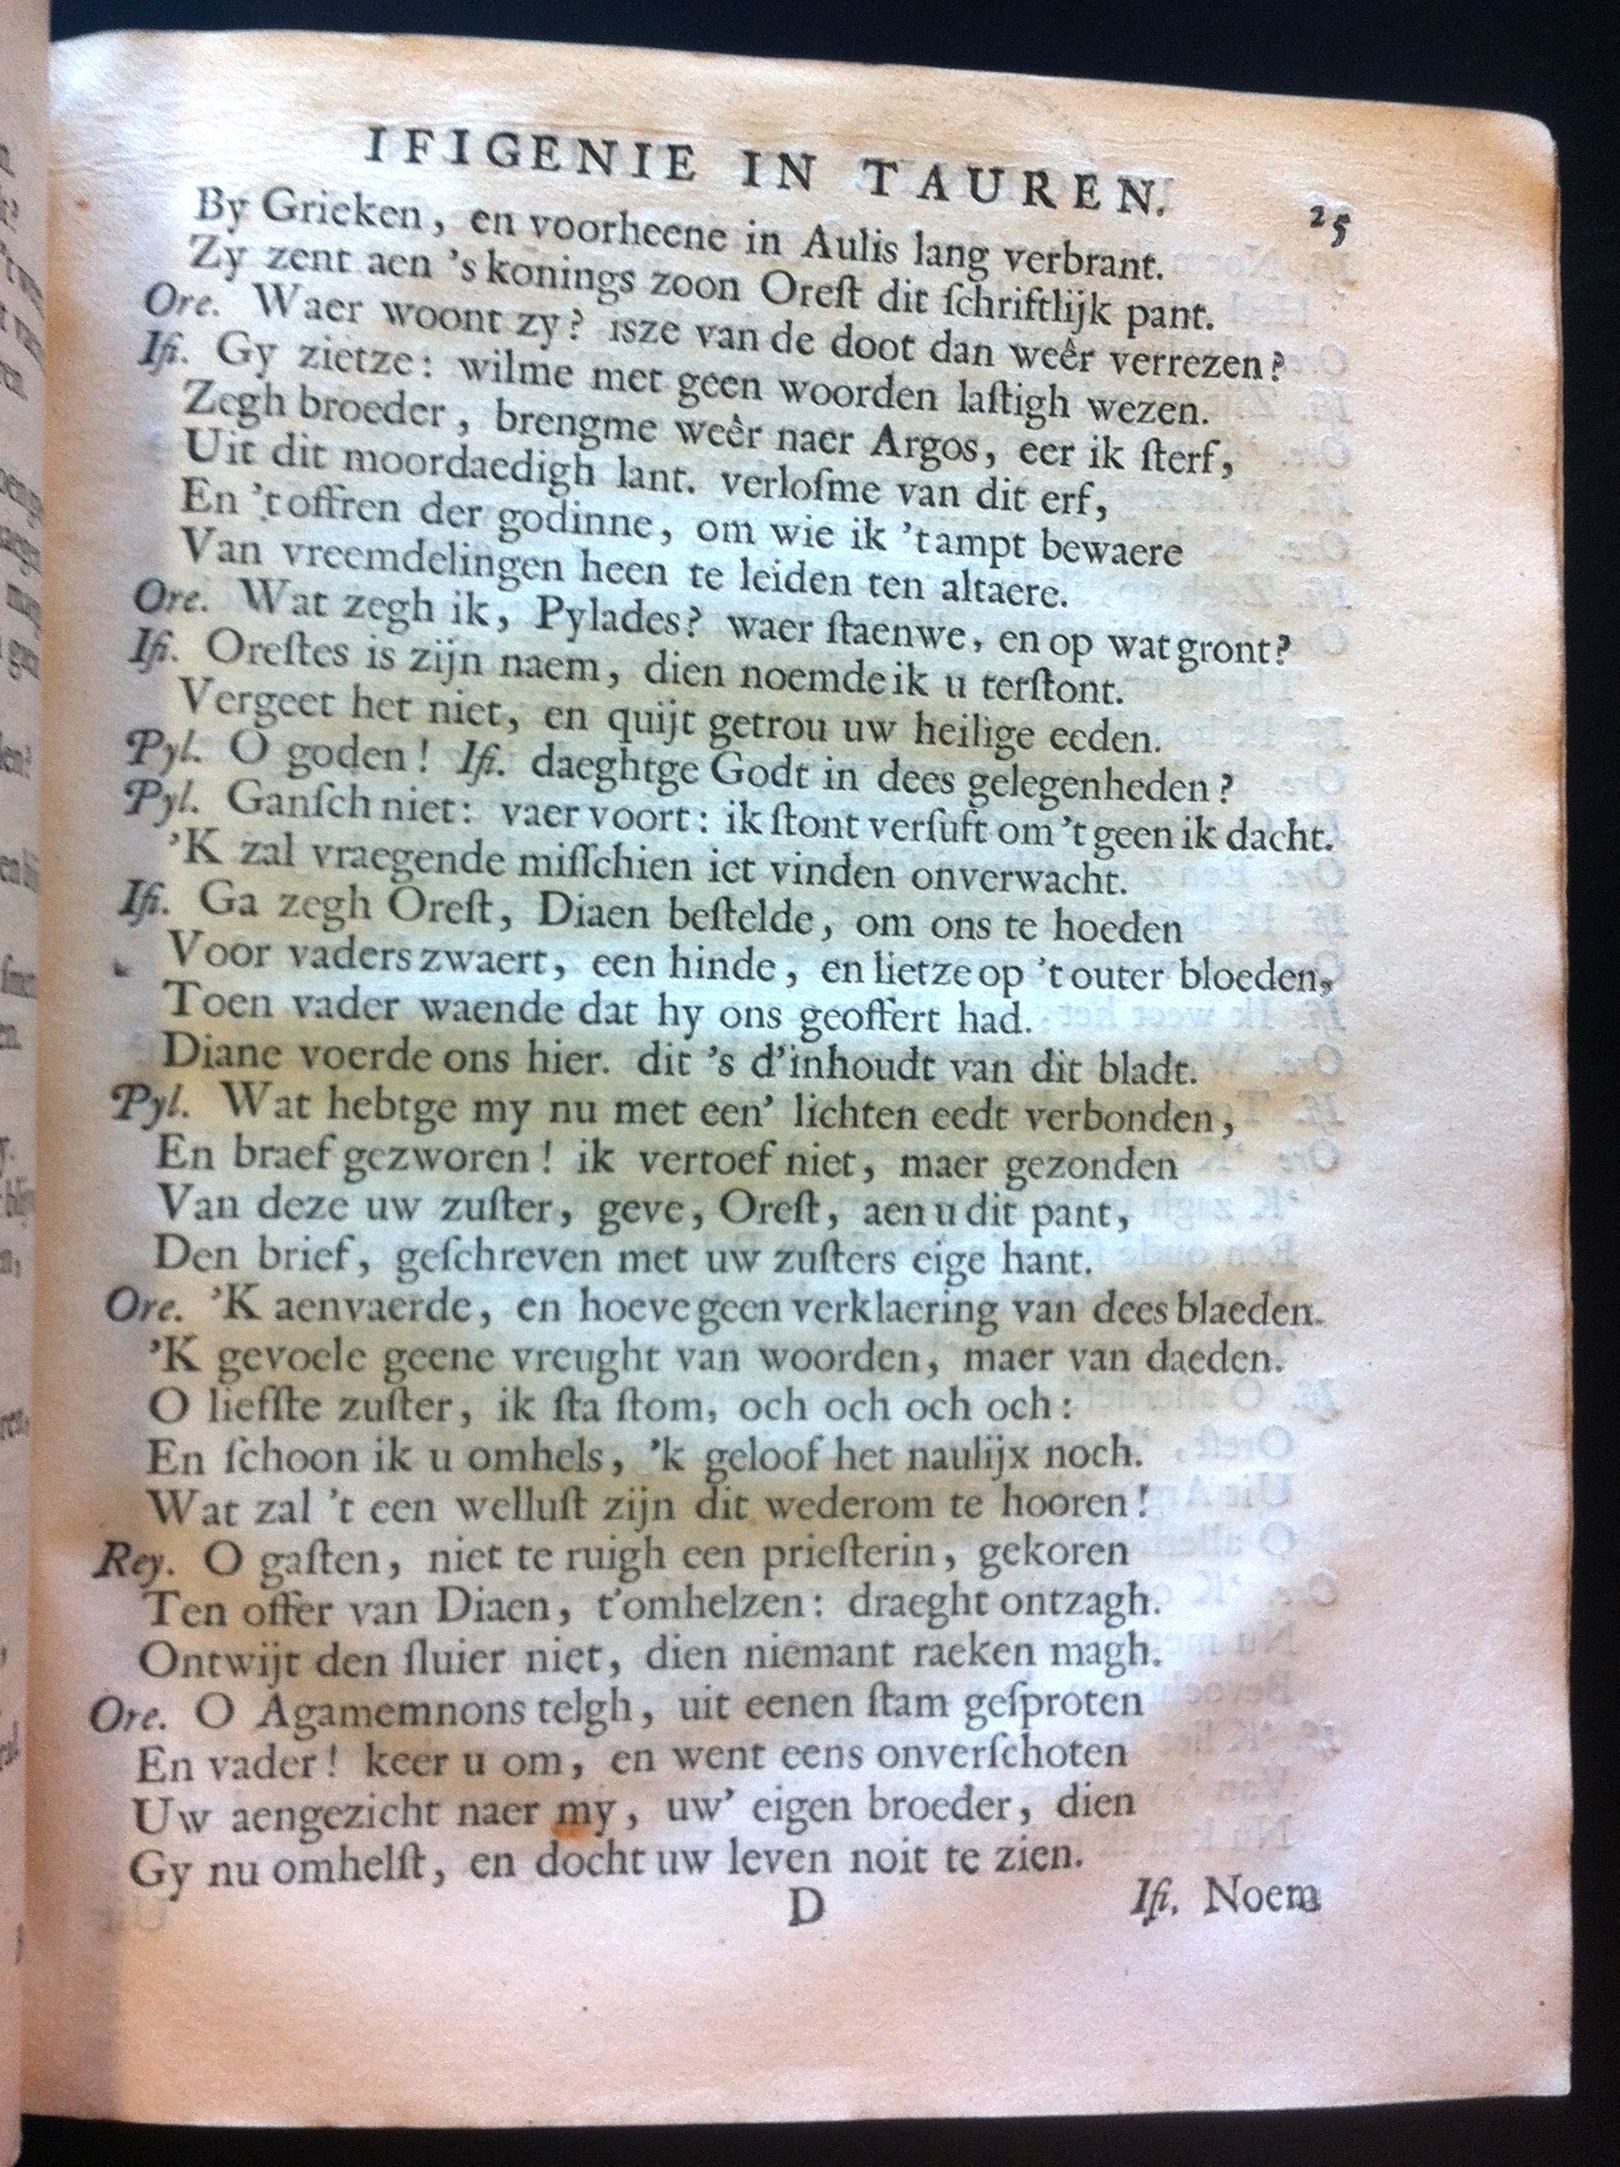 IFIGENIE IN TAUREN. 25
By Grieken, en voorheene in Aulis lang verbrant.
Zy zent aen 's konings zoon Oreſt dit ſchriftlijk pant.
Ore. Waer woont zy? isze van de doot dan weêr verrezen?
Ifi. Gy zietze: wilme met geen woorden laſtigh wezen.
Zegh broeder, brengme weêr naer Argos, eer ik ſterf,
Uit dit moordaedigh lant. verloſme van dit erf,
En 't offren der godinne, om wie ik 't ampt bewaere
Van vreemdelingen heen te leiden ten altaere.
Ore. Wat zegh ik, Pylades? waer ſtaenwe, en op wat gront?
Ifi. Oreſtes is zijn naem, dien noemde ik u terſtont.
Vergeet het niet, en quijt getrou uw heilige eeden.
Pyl. O goden! Ifi. daeghtge Godt in dees gelegenheden?
Pyl. Ganſch niet: vaer voort: ik ſtont verſuft om 't geen ik dacht.
'K zal vraegende miſſchien iet vinden onverwacht.
Ifi. Ga zegh Oreſt, Diaen beſtelde, om ons te hoeden
Voor vaders zwaert, een hinde, en lietze op 't outer bloeden,
Toen vader waende dat hy ons geoffert had.
Diane voerde ons hier. dit 's d'inhoudt van dit bladt.
Pyl. Wat hebtge my nu met een' lichten eedt verbonden,
En braef gezworen! ik vertoef niet, maer gezonden
Van deze uw zuſter, geve, Oreſt, aen u dit pant,
Den brief, geſchreven met uw zuſters eige hant.
Ore. 'K aenvaerde, en hoeve geen verklaering van dees blaeden.
'K gevoele geene vreught van woorden, maer van daeden.
O liefſte zuſter, ik ſta ſtom, och och och och:
En ſchoon ik u omhels, 'k geloof het naulijx noch.
Wat zal 't een welluſt zijn dit wederom te hooren!
Rey. O gaſten, niet te ruigh een prieſterin, gekoren
Ten offer van Diaen, t'omhelzen: draeght ontzagh.
Ontwijt den ſluier niet, dien niemant raeken magh.
Ore. O Agamemnons telgh, uit eenen ſtam geſproten
En vader! keer u om, en went eens onverſchoten
Uw aengezicht naer my, uw' eigen broeder, dien
Gy nu omhelſt, en docht uw leven noit te zien.
D Ifi. Noem